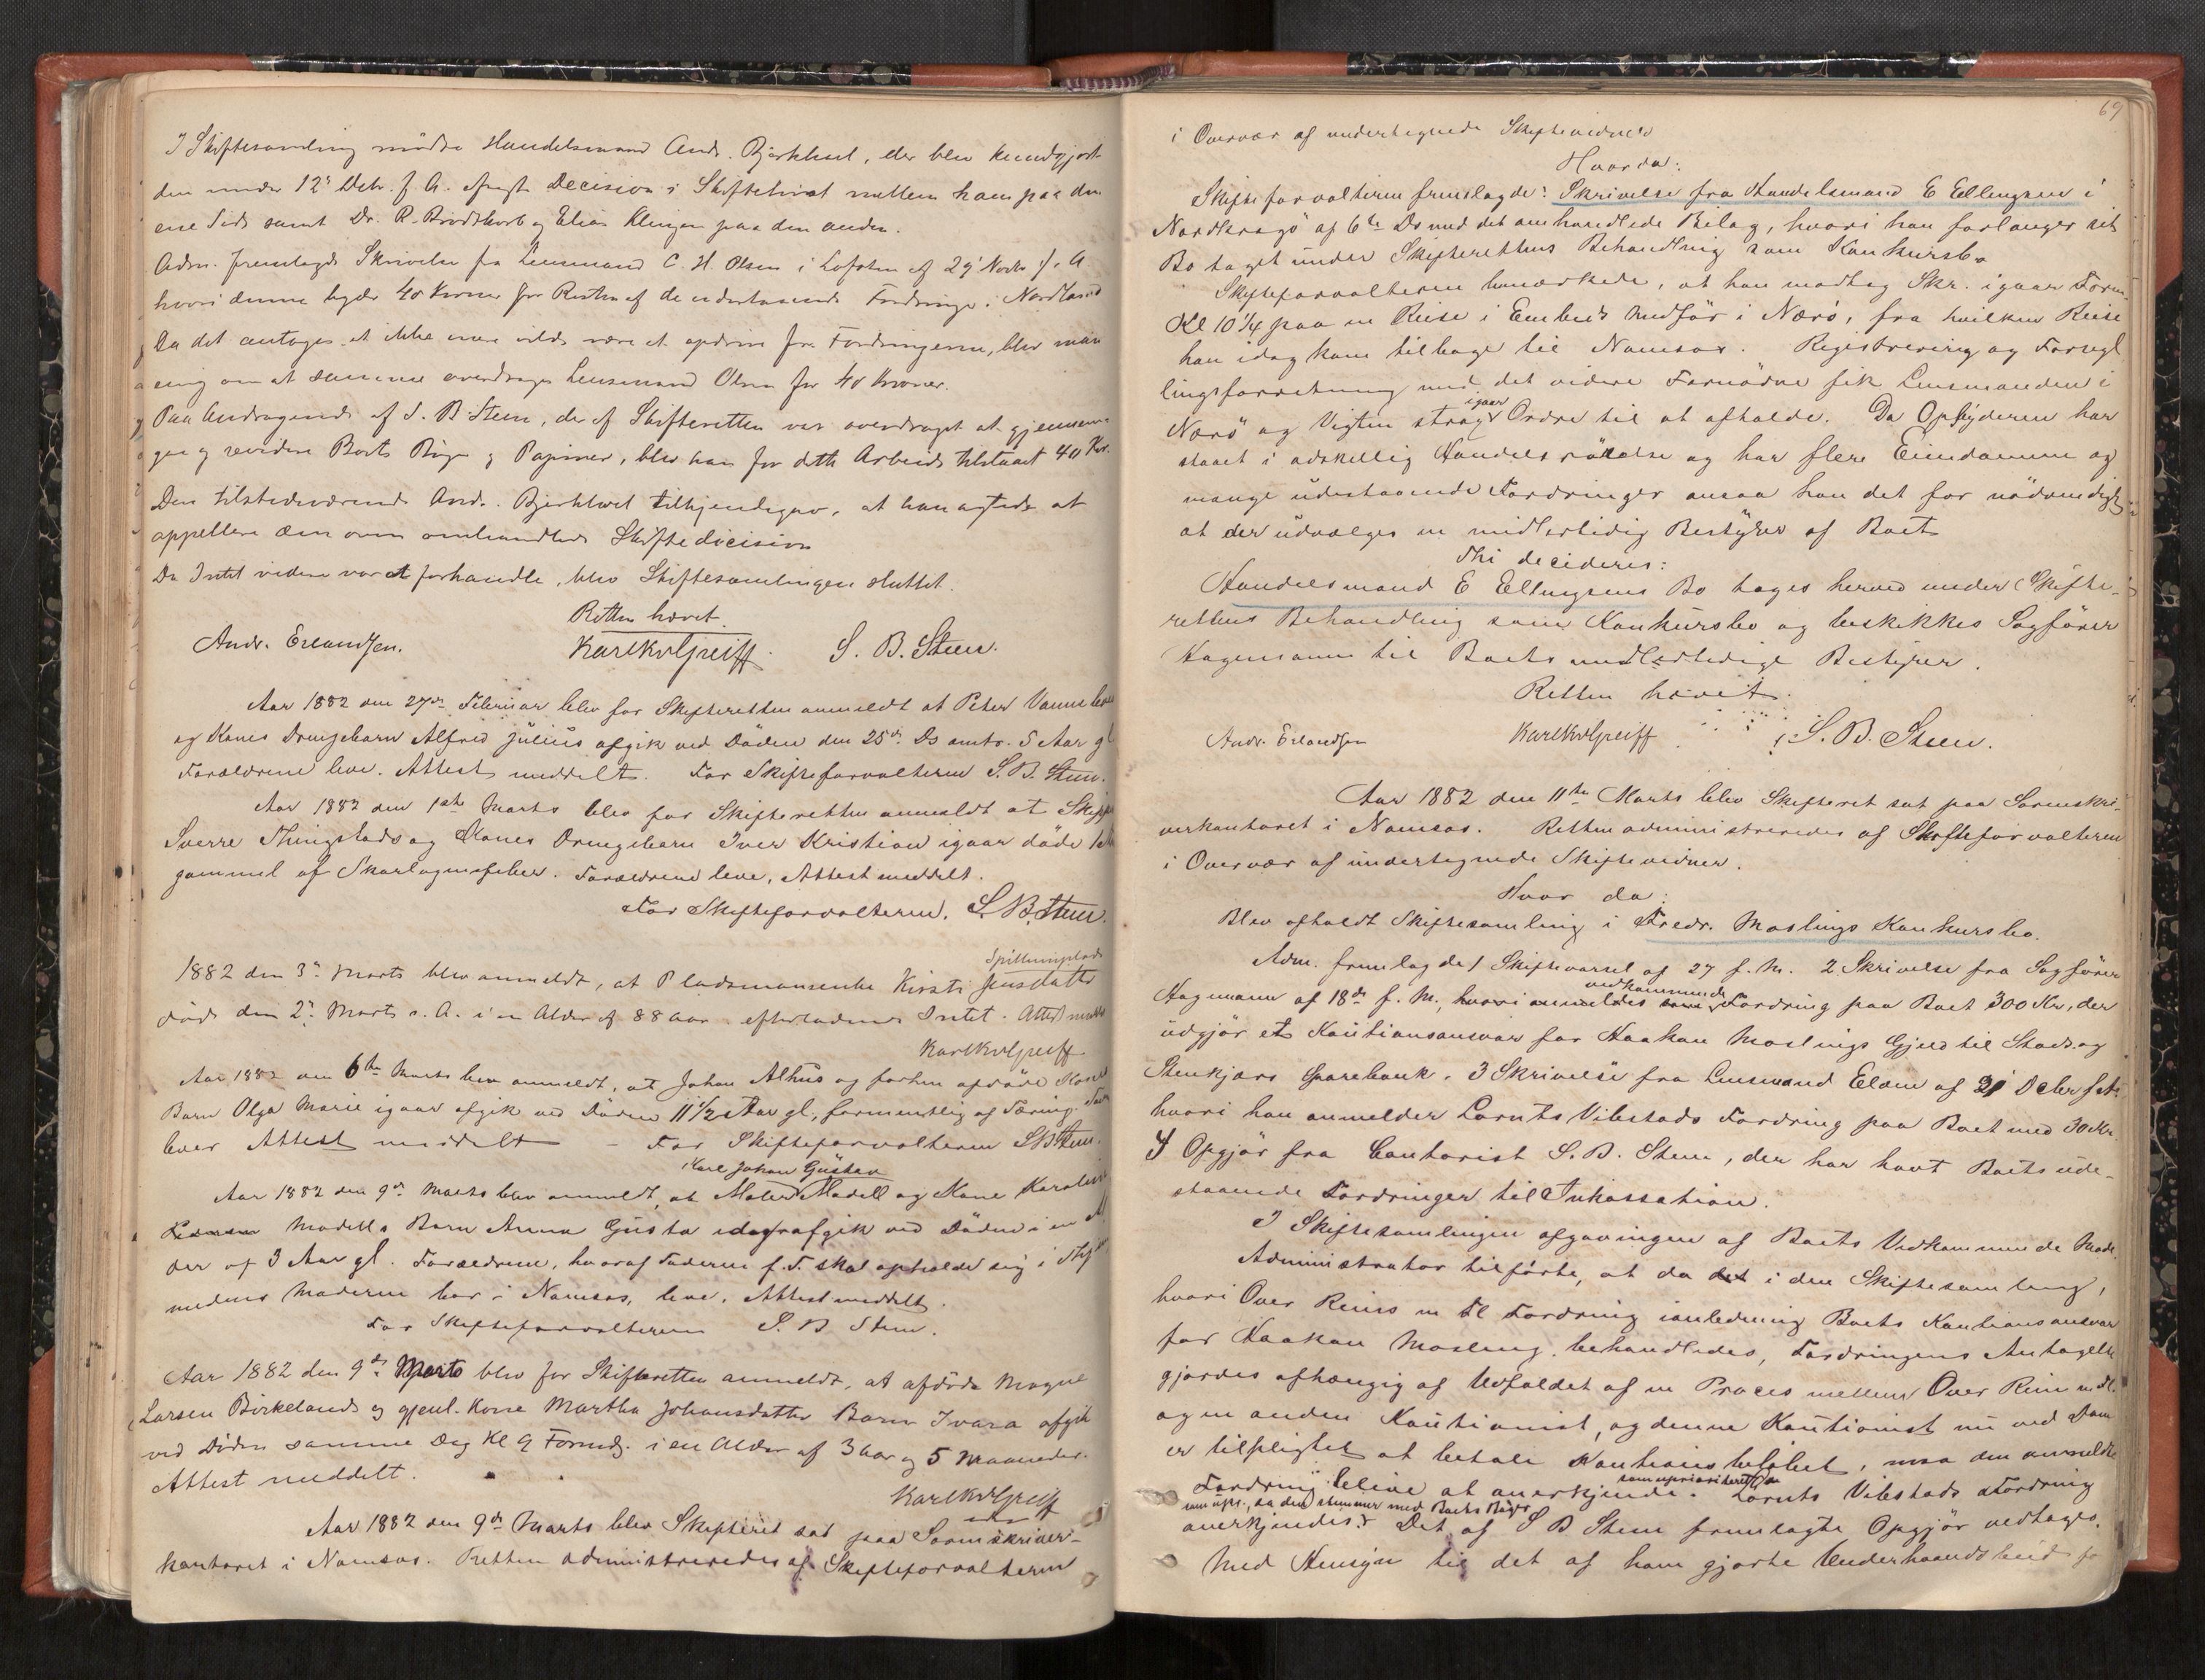 I Skiftesamling mødte Handelsmand Andr. Bjerkhoel, der blev kundgjort
den under 12' Debr. f. A. afsagte Decision i Skiftetvist mellem ham paa den
ene Side samt Dr. R. Brodtkorb og Elias Klingen paa den anden.
Adm. fremlagde Skrivelse fra Lensmand C. H. Olsen i Lofoten af 29' Novbr. f. A.
hvori denne byder 40 Kroner for Resten af de udestaaende Fordringer i Nordland
Da det antages at ikke mere vilde være at opdrive fra Fordringerne, blev man
enig om at samme overdrages Lensmand Olsen for 40 Kroner.
Paa Andragende af S. B. Steen, der af Skifteretten var overdraget at gjennem-
gaa og revidere Boets Bøger og Papirer, blev ham for dette Arbeide tilstaaet 40 Kr.
Den tilstedeværende Andr. Bjerkhoel tilkjendegav, at han agtede at
appellere den oven omhandlede Skiftedecision
Da Intet videre var at forhandle, blev Skiftesamlingen sluttet.
Retten hævet.
Andr. Erlandsen. Karl Greiff. S. B. Steen.
Aar 1882 den 27de Februar blev for Skifteretten anmeldt at Peter
og Kones Drengebarn Alfred Julius afgik ved Døden den 25de Ds omtr. 5 Aar gl
Forældrene leve. Attest meddelt. For Skifteforvalteren S. B. Steen.
Aar 1882 den 1ste Marts blev for Skifteretten anmeldt at
Sverre Thingstads og Kones Drengebarn Iver Kristian igaar døde 1
gammel af Skarlagensfeber. Forældrene leve, Attest meddelt.
For Skifteforvalteren. S. B. Steen.
Spillumplads
1882 den 3' Marts blev anmeldt, at Pladsmansenke Kirsti Jensdatter
døde den 2' Marts s. A. i en Alder af 88 Aar efterladende Intet. Attest
Karl Greiff
Aar 1882 den 6te Marts blev anmeldt, at Johan Alhus og forhen afdøde Kones
Barn Olga Marie igaar afgik ved Døden 11 1/2 Aar gl., formentlig af Tæring.
lever Attest meddelt – For Skifteforvalteren S B Steen.
Karl Johan Gustav
Aar 1882 den 9de Marts blev anmeldt, at Maler Modell og Kone
Modells Barn Anna Gusta idag afgik ved Døden i en Al
der af 3 Aar gl. Forældrene, hvoraf Faderen f. T. skal opholde sig i
medens Moderen bor i Namsos, leve. Attest meddelt.
For Skifteforvalteren S. B Steen.
Aar 1882 den 9de Marts blev for Skifteretten anmeldt, at afdøde Magne
Larsen Birkelands og gjenl. Kone Martha Johansdatters Barn Ivara afgik
ved Døden samme Dag Kl 9 Formdg. i en Alder af 3 Aar og 5 Maaneder.
Attest meddelt.
Karl Greiff
Aar 1882 den 9de Marts blev Skifteret sat paa Sorenskriver-
kontoret i Namsos. Retten administreredes af Skifteforvalteren
69
i Overvær af undertegnede Skiftevidner
Hvor da:
Skifteforvalteren fremlagde: Skrivelse fra Handelsmand E Ellingsen i
Nordkragø af 6te Ds med det omhandlede Bilag, hvori han forlanger sit
Bo taget under Skifterettens Behandling som Konkursbo
Skifteforvalteren bemærkede, at han modtog Skr. igaar Form.
Kl 10 1/4 paa en Reise i Embeds Medfør i Nærø, fra hvilken Reise
han idag kom tilbage til Namsos. Registrering og Forsegl
lingsforretning med det videre Fornødne fik Lensmanden i
igaar
Nærø og Vigten strax Ordre til at afholde. Da Opbyderen har
staaet i adskillig Handelsrørelse og har flere Eiendomme og
mange udestaaende Fordringer ansaa han det for nødvendigt
at der udvælges en midlertidig Bestyrer af Boet
Thi decideres:
Handelsmand E Ellingsens Bo tages herved under Skifte-
rettens Behandling som Konkursbo og beskikkes Sagfører
Hagemann til Boets midlertidige Bestyrer.
Retten hævet.
Andr. Erlandsen Karl Greiff S. B. Steen.
Aar 1882 den 11te Marts blev Skifteret sat paa Sorenskri-
verkontoret i Namsos. Retten administreredes af Skifteforvalteren
i Overvær af undertegnede Skiftevidner.
Hvor da:
Blev afholdt Skiftesamling i Fredr. Moslings Konkursbo.
Adm. fremlagde 1 Skiftevarsel af 27 f. M. 2 Skrivelse fra Sagfører
vedkommende
Hagemann af 18de f. M., hvori anmeldes Fordring paa Boet 300 Kr, der
udgjør et Kautionsansvar for Haakon Moslings Gjeld til Stods og
Stenkjærs Sparebank. 3 Skrivelse fra Lensmand Elden af 31 Debr f. A.
hvori han anmelder Lornts Vibstads Fordring paa Boet med 30 Kr.
4 Opgjør fra Contorist S. B. Steen, der har havt Boets ude-
staaende Fordringer til Inkassation.
I Skiftesamlingen afgav ingen af Boets Vedkommende Møde.
Administrator tilførte, at da i den Skiftesamling,
hvori Over Reins m fl Fordring i anledning Boets Kautionsansvar
for Haakon Mosling behandledes, Fordringens Antagelse
gjordes afhængig af Udfaldet af en Proces mellem Over Rein m fl.
og en anden Kautionist, og denne Kautionist nu ved Dom
er tilpligtet at betale Kautionsbeløbet, maa den anmeldte
som uprioriteret
Fordring blive at anerkjende. Lornts Vibstads Fordring
som upr., da den stemmer med Boets Bøger
anerkjendes. Det af S B Steen fremlagte Opgjør vedtages.
Med Hensyn til det af ham gjorte Underhaandsbud